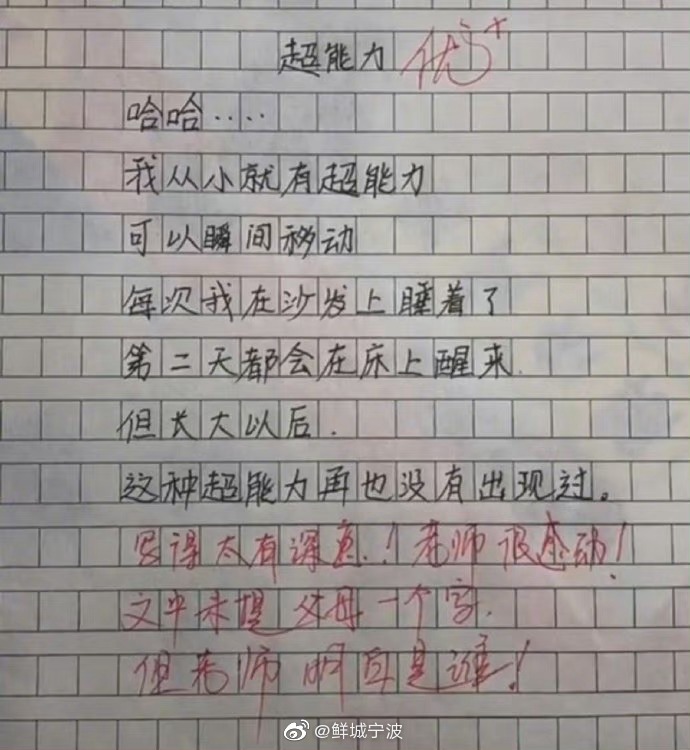 超能力 优+
哈哈····
我从小就有超能力
可以瞬间移动
每次我在沙发上睡着了
第二天都会在床上醒来.
但长大以后.
这种超能力再也没有出现过。
写得太有深意!老师很感动!
文中未提父母一个字.
但老师明白是谁!
@鲜城宁波